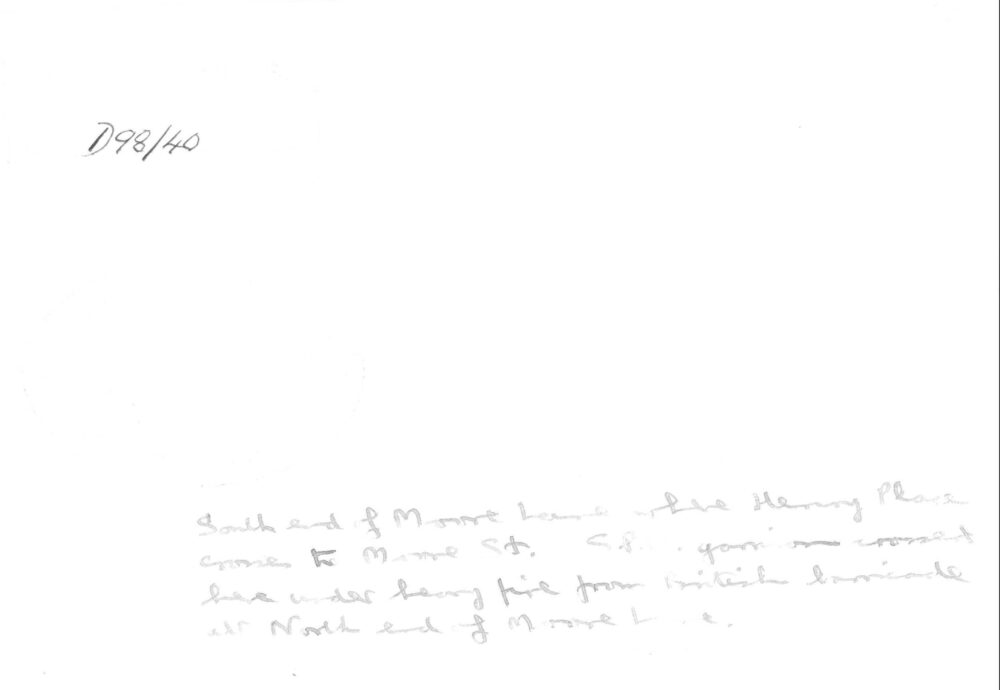 D98/40
South end of Moore Lane where Henry Place
comes to Moore St. garrison crossed
here under heavy fire from British barricade
at North end of Moore